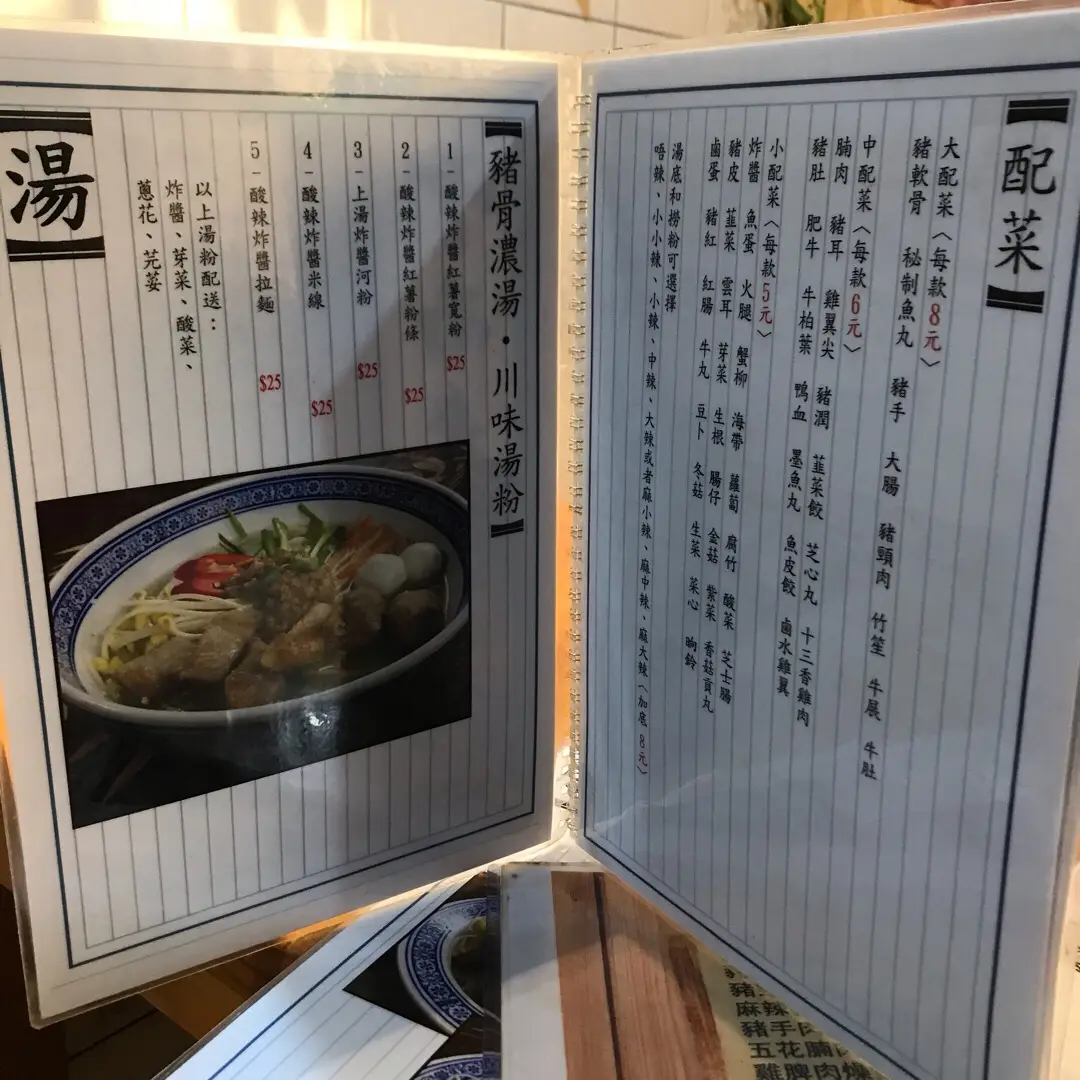 配菜
大配菜〈每款8元〉
豬軟骨 秘制魚丸 豬手 大腸 豬頸肉 竹笙 牛展 牛肚
中配菜〈每款6元〉
腩肉 豬耳 雞翼尖 豬潤 韮菜餃 芝心丸 十三香雞肉
豬肚 肥牛 牛柏葉 鴨血 墨魚丸 魚皮餃 鹵水雞翼
小配菜〈每款5元〉
炸醬 魚蛋 火腿 蟹柳 海帶 蘿蔔 腐竹 酸菜 芝士腸
豬皮 韮菜 雲耳 芽菜 生根 腸仔 金菇 紫菜 香菇貢丸
鹵蛋 豬紅 紅腸 牛丸 豆卜 冬菇 生菜 菜心 㖿鈴
湯底和撈粉可選擇
唔辣、小小辣、小辣、中辣、大辣或者麻小辣、麻中辣、麻大辣〈加底8元〉
豬骨濃湯·川味湯粉
1-酸辣炸醬紅薯寬粉 $25
2-酸辣炸醬紅薯粉條 $25
3-上湯炸醬河粉 $25
4-酸辣炸醬米線 $25
5-酸辣炸醬拉麵 $25
以上湯粉配送：
炸醬、芽菜、酸菜、
蔥花、芫荽
湯
麻辣
豬手
五花腩
雞脾肉